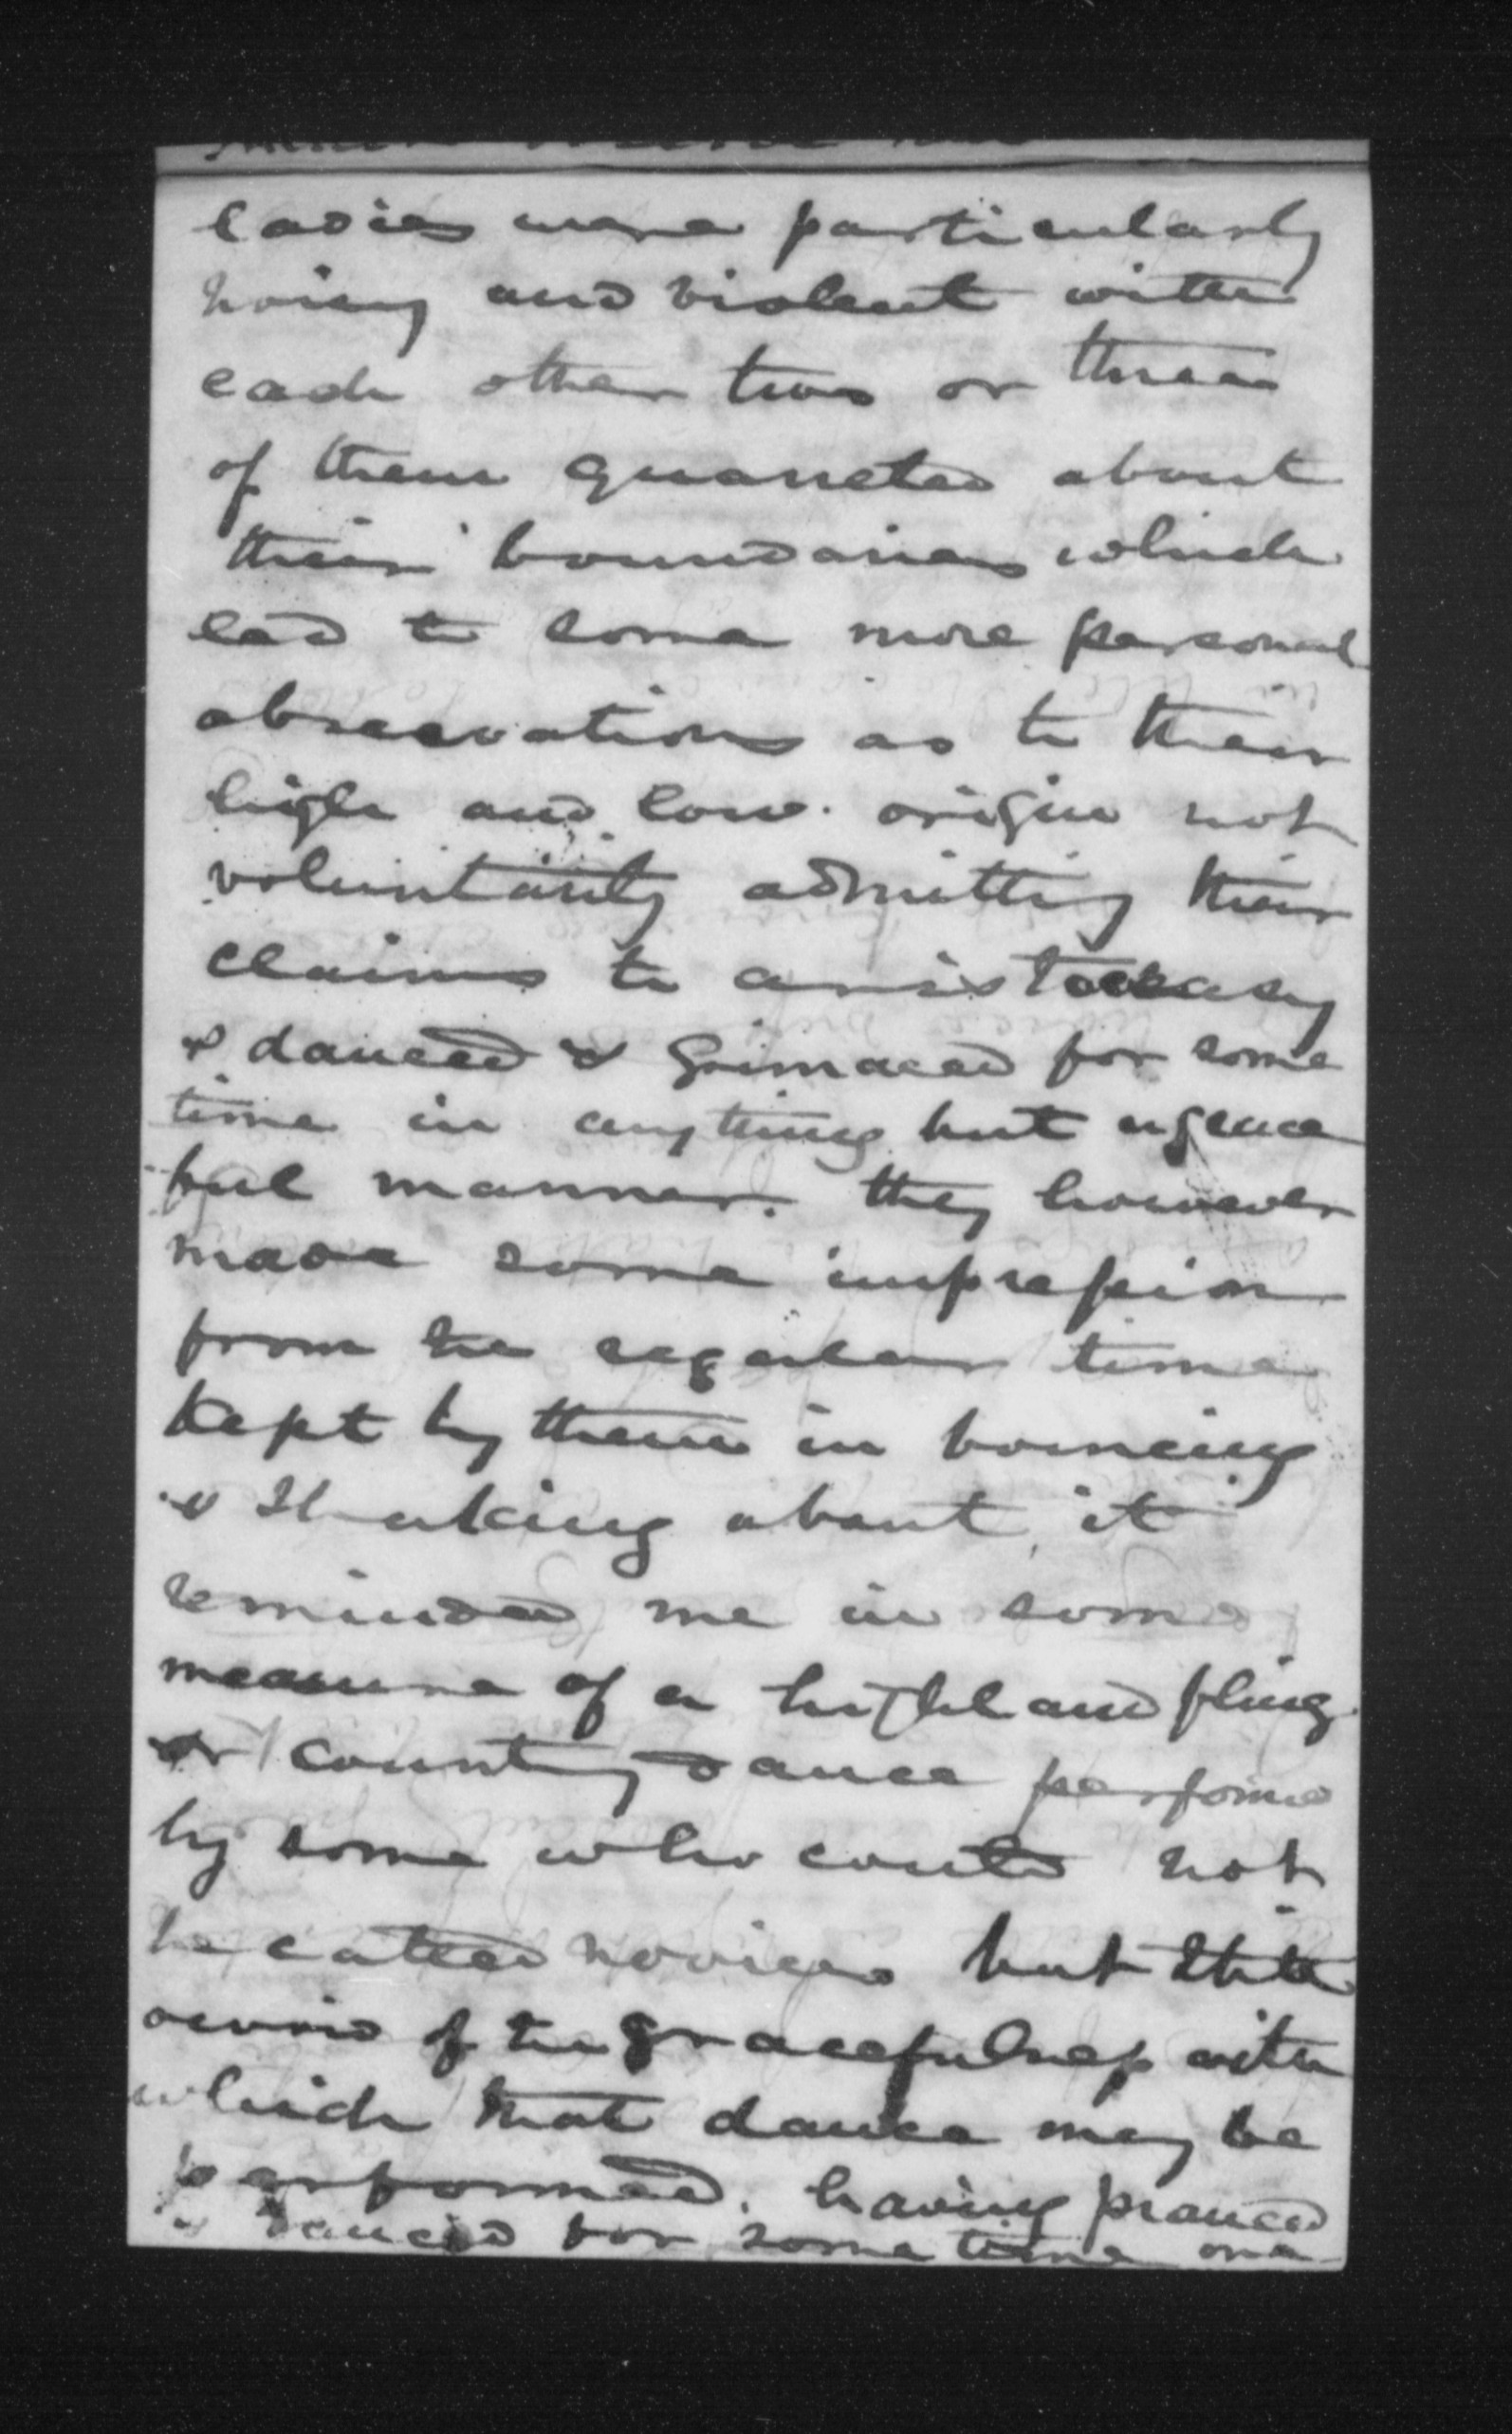 ladies were particularly
noisy and violent with
each other two or three
of them quarreled about
their boundaries which
led to some more personal
observations as to their
high and low origin not
voluntarily admitting their
claims to aristocracy
& danced & Grimaced for some
time in anything but a grace
ful manner. they however
made some impression
from the regular time
kept by them in bouncing
& about it
reminded me in some
measure of a highland fling
or country dance performed
by some who could not
be called novices but still
of the gracefulness with
which that dance may be
performed. having pranced
& danced for some time one